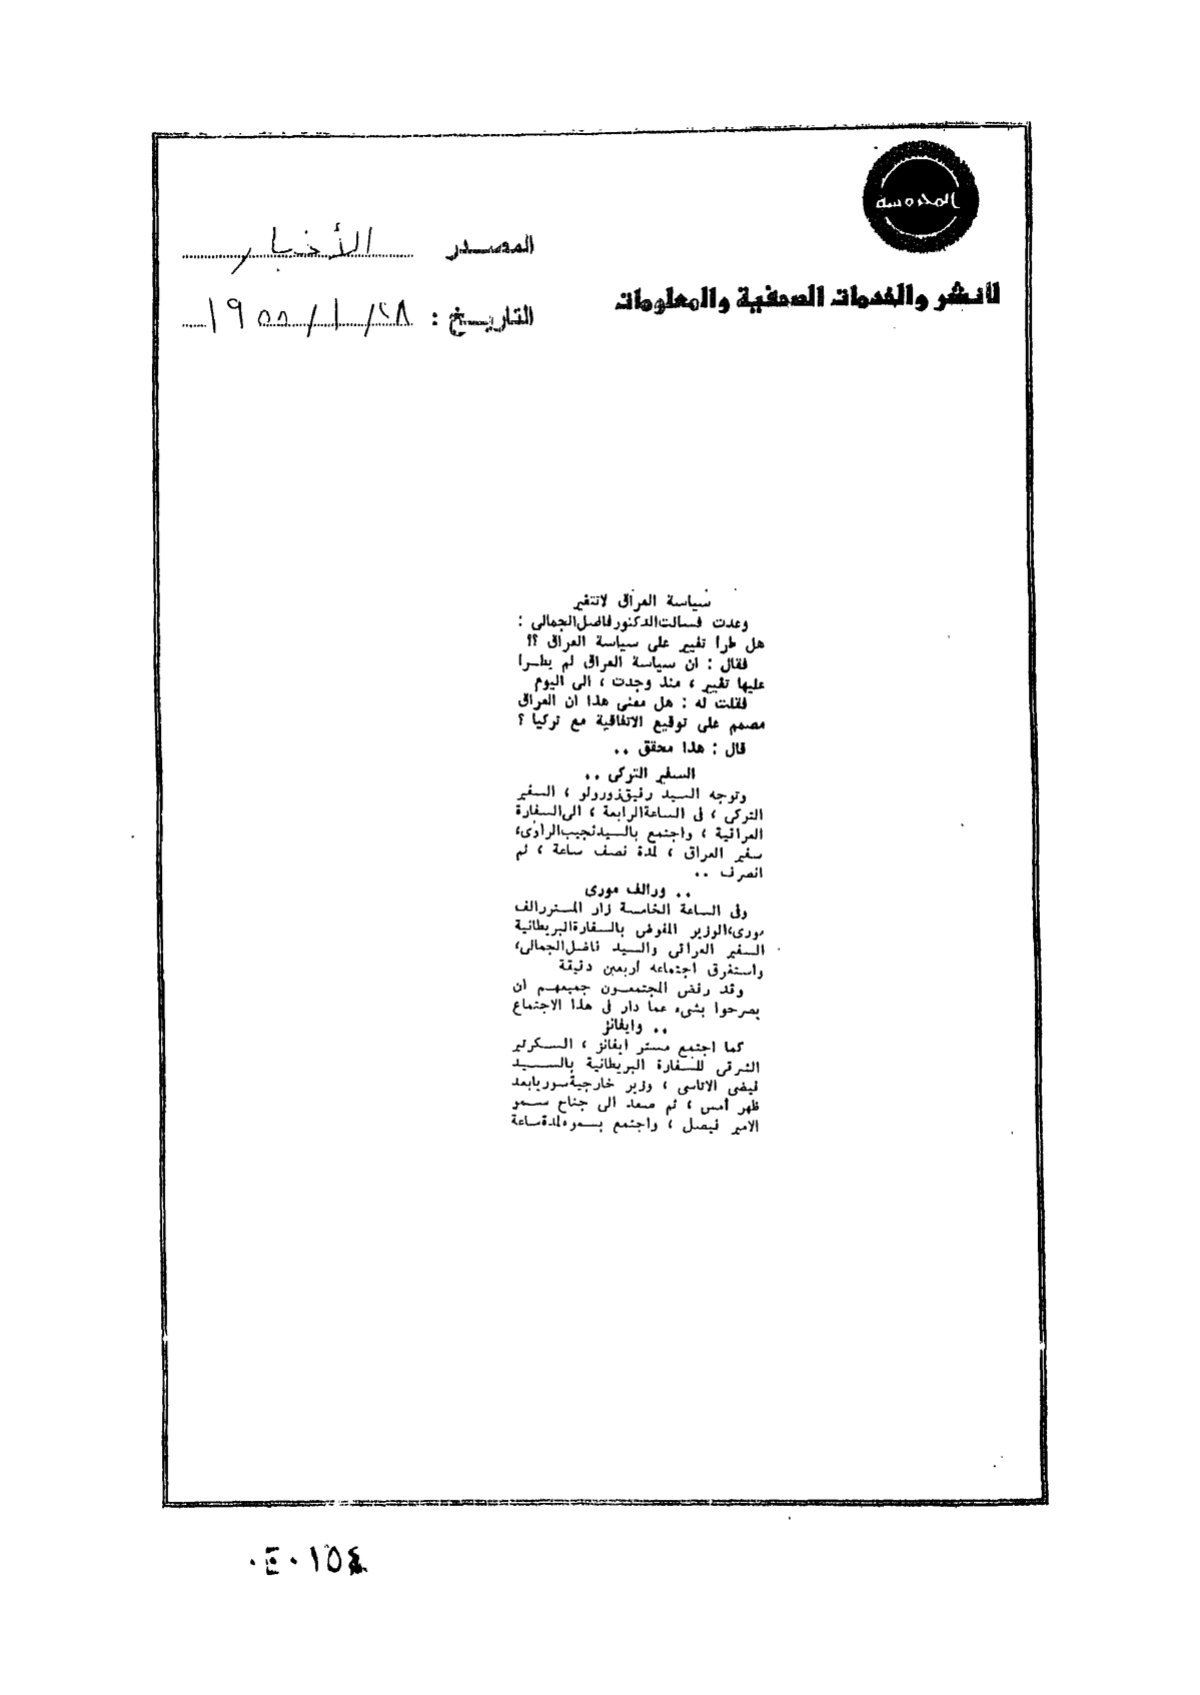 المحروسة
للنشر والخدمات الصحفية والمعلومات
المصدر الأخبار
التاريخ : ٢٨/ ١/ ١٩٥٥
سياسة العراق لاتتغير
وعدت فسألت الدكتور فاضل الجمالى :
هل طرأ تغيير على سياسة العراق ؟؟
فقال : ان سياسة العراق لم يطرأ
عليها تغيير ، منذ وجدت ، الى اليوم
فقلت له : هل معنى هذا ان العراق
مصمم على توقيع الاتفاقية مع تركيا ؟
قال : هذا محقق ..
السفير التركى ..
وتوجه السيد رفيق زورولو ، السفير
التركى ، فى الساعة الرابعة ، الى السفارة
العراقية ، واجتمع بالسيد نجيب الراوى،
سفير العراق ، لمدة نصف ساعة ، ثم
انصرف ..
.. ورالف مورى
وفى الساعة الخامسة زار المستر رالف
مورى، الوزير المفوض بالسفارة البريطانية
السفير العراقى والسيد فاضل الجمالى،
واستغرق اجتماعه أربعين دقيقة
وقد رفض المجتمعون جميعهم ان
يصرحوا بشىء عما دار فى هذا الاجتماع
.. وايفانز
كما اجتمع مستر ايفانز ، السكرتير
الشرقى للسفارة البريطانية بالسيد
فيضى الاتاسى ، وزير خارجية سوريا بعد
ظهر أمس ، ثم صعد الى جناح سمو
الامير فيصل ، واجتمع بسموه لمدة ساعة